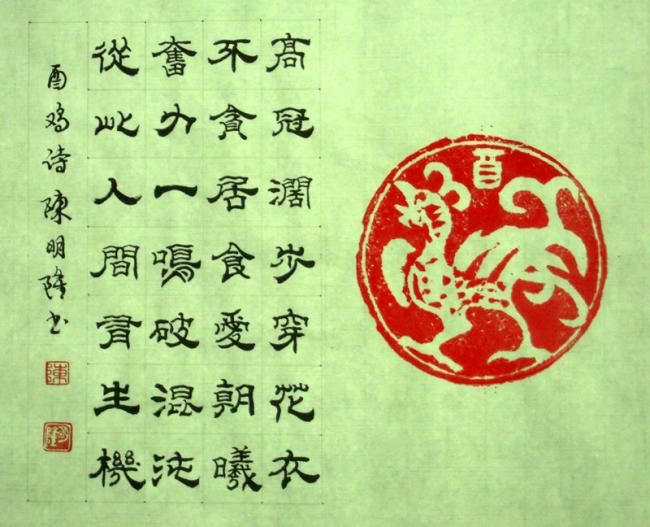 酉
高冠濶步穿花衣
不貪居食愛朝曦
奮力一鳴破混沌
從此人間有生機
酉鸡诗 陳明隆书
陳